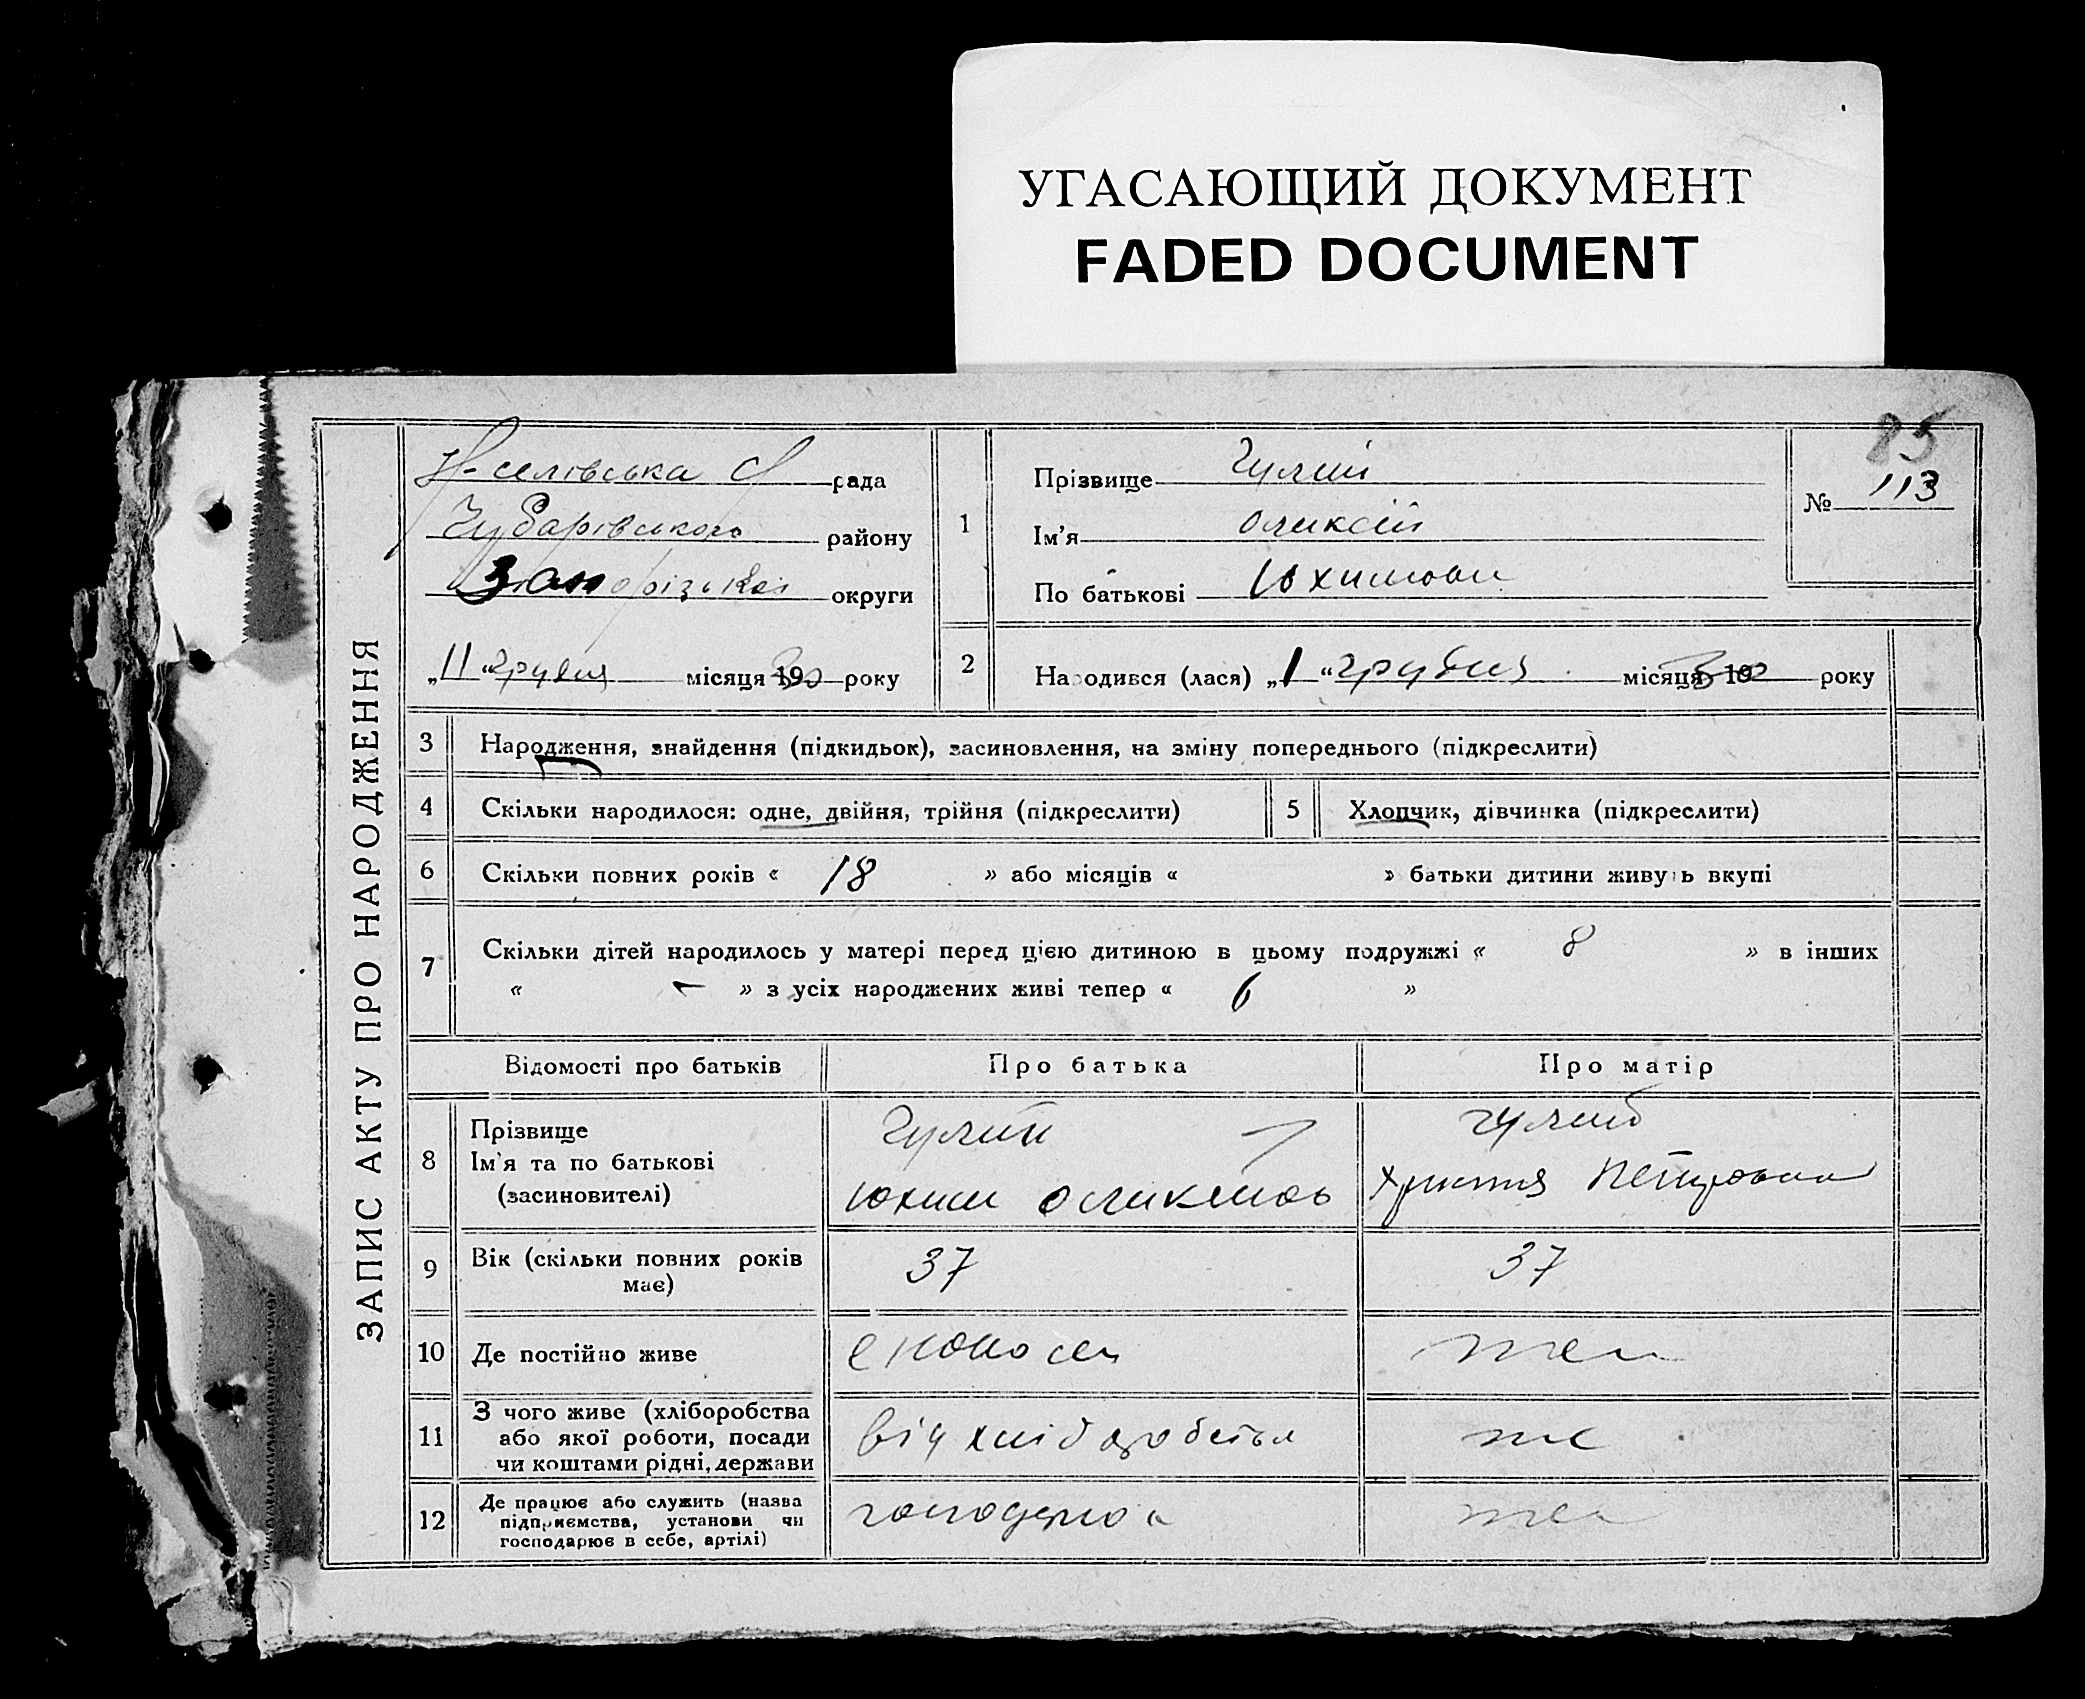 УГАСАЮЩИЙ ДОКУМЕНТ
FADED DOCUMENT
85
ЗАПИС АКТУ ПРО НАРОДЖЕННЯ
Н-селівська С рада
Чубарівського району
Запорізької округи
„11“ грудня місяця 1930 року
1
Прізвище Гулий
Ім'я Олексій
По батькові Юхимови
№ 113
2 Народився (лася) „1“ грудня місяця 1930 року
3 Народження, знайдення (підкидьок), засиновлення, на зміну попереднього (підкреслити)
4 Скільки народилося: одне, двійня, трійня (підкреслити) 5 Хлопчик, дівчинка (підкреслити)
6 Скільки повних років « 18 » або місяців « » батьки дитини живуть вкупі
7 Скільки дітей народилось у матері перед цією дитиною в цьому подружжі « 8 » в інших
« – » з усіх народжених живі тепер « 6 »
Відомості про батьків Про батька Про матір
8 Прізвище
Ім'я та по батькові
(засиновителі)
Гулий
Юхим
Гулий
Христя Петровна
9 Вік (скільки повних років має) 37 37
10 Де постійно живе
11 З чого живе (хліборобства
або якої роботи, посади
чи коштами рідні, держави
від хліборобства
12 Де працює або служить (назва
підприємства, установи чи
господарює в себе, артілі)